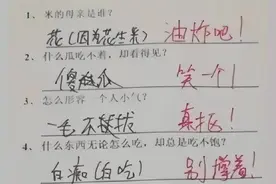 1. 米的母亲是谁？
花(因为花生米) 油炸吧！
2. 什么瓜吃不着，却看得见？
傻瓜 笑一个！
3. 怎么形容一个人小气？
一毛不拔 真抠！
4. 什么东西无论怎么吃，却总是吃不饱？
白痴(白吃) 别撑着！